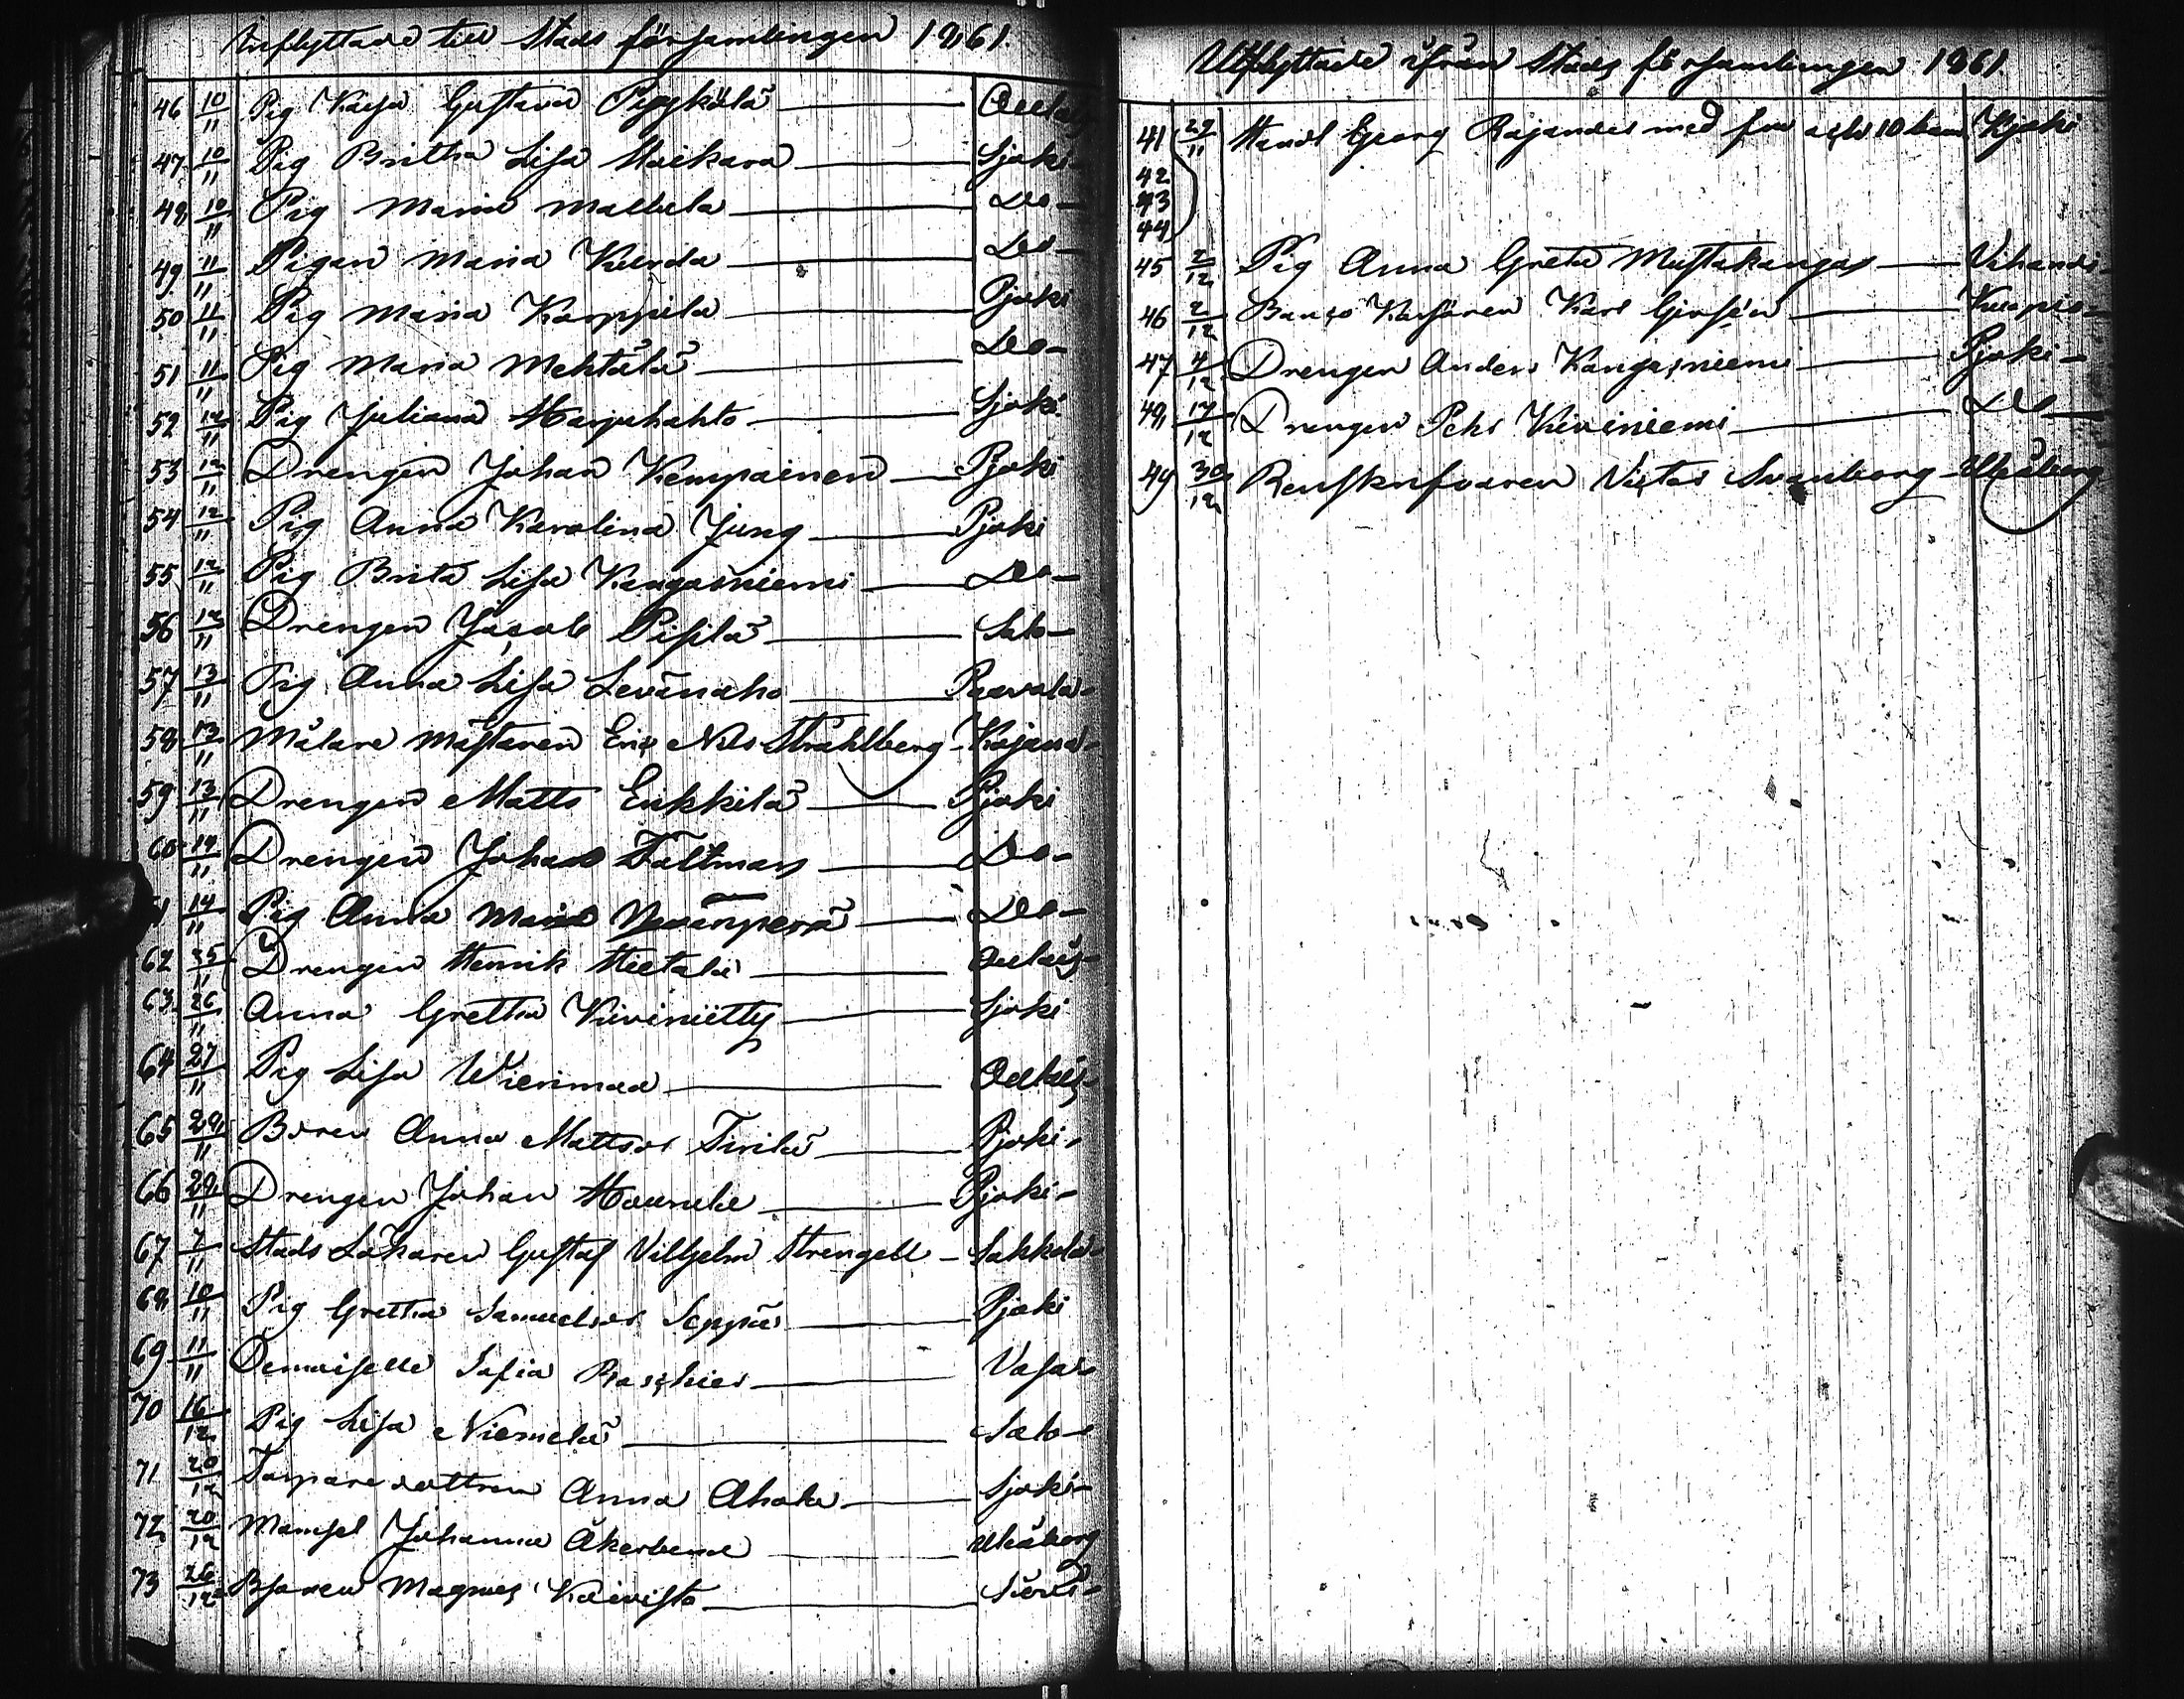 Inflyttade till Stads församlingen 1861.
46 10/11 Pig Kajsa Gustava Pyykölä — Oulais
47 10/11 Pig Britha Lisa Maikara — Sjoki
48 10/11 Pig Maria Mattila — Do
49 11/11 Pigan Maria — Do
50 11/11 Pig Maria Karppila — Pjoki
51 11/11 Pig Maria Mehtälä — Do
52 12/11 Pig Juliana Harjuhahto — Sjoki
53 12/11 Drengen Johan Kempainen — Pjoki
54 12/11 Pig Anna Karolina Jung — Pjoki
55 12/11 Pig Brita Lisa Kangasniemi — Do
56 12/11 Drengen Jacob Pispla — Salo
57 13/11 Pig Anna Lisa Levänaho — Paavola
58 13/11 Målare mästaren Eric Nils Strahlberg — Kajana
59 13/11 Drengen Matts Erkkilä — Pjoki
60 14/11 Drengen Johan Faltman — Do
61 14/11 Pig Anna Maria Nevanperä — Do
62 25/11 Drengen Henrik Hietala — Oulais
63 26/11 Anna Gretha Kiviniitty — Sjoki
64 27/11 Pig Lisa Wierimaa — Oulais
65 28/11 Anna Mattsdr Tirilä — Pjoki
66 28/11 Drengen Johan — Pjoki
67 7/11 Stads Läkaren Gustaf Vilhelm Strengell — Sakkola
68 10/11 Pig Gretha Samuelsdr Seppä — Pjoki
69 11/11 Demoiselle Sofia — Vasa
70 16/12 Pig Lisa Niemelä — Salo
71 20/12 Torpare dottren Anna Ahola — Sjoki
72 20/12 Mamsel Johanna Åkerbend — Uleåborg
73 26/12 Magnus Koivisto — Sievi
Utflyttade ifrån Stads församlingen 1861
41 29/11 Handl Georg Rajander med fru och 10 barn Kjoki
42
43
44
45 2/12 Pig Anna Greta Mustakangas — Vihandi
46 2/12 Banco Kassören Karl — Kuopio
47 4/12 Drengen Anders Kangasniemi — Pjoki
48 17/12 Drengen Pehr Kiviniemi — Do
49 30/12 Renskrifvaren Victor Svanborg — Uleåborg